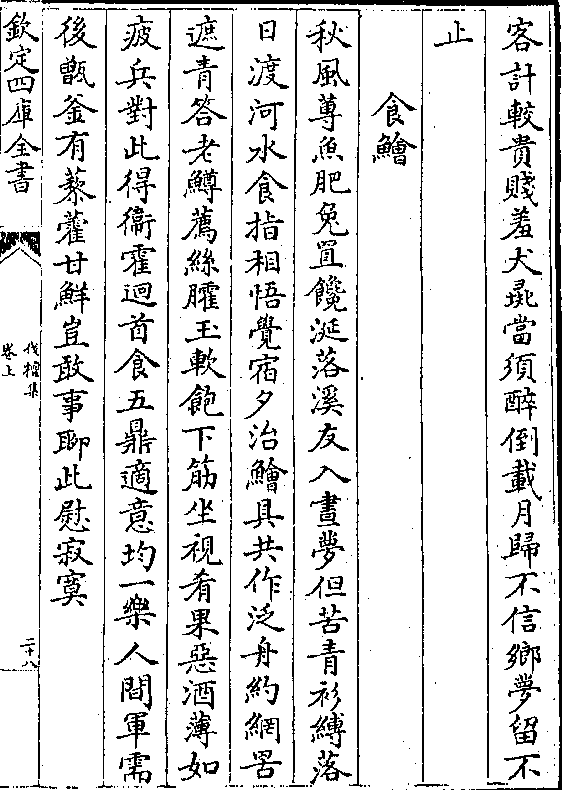 客計較貴賤羞犬彘當須醉倒載月歸不信鄉夢留不
止
食鱠
秋風蓴魚肥兔罝饞涎落溪友入晝夢但苦青衫縛落
日渡河水食指相悟覺宿夕治鱠具共作泛舟約網罟
遮青答老鱒薦絲臛玉軟飽下筋坐視肴果惡酒薄如
疲兵對此得衞霍迴首食五鼎適意均一樂人間軍需
後甑釜有藜藿甘鮮豈敢事聊此慰寂寞
欽定四庫全書
伐檀集
卷上
二十八